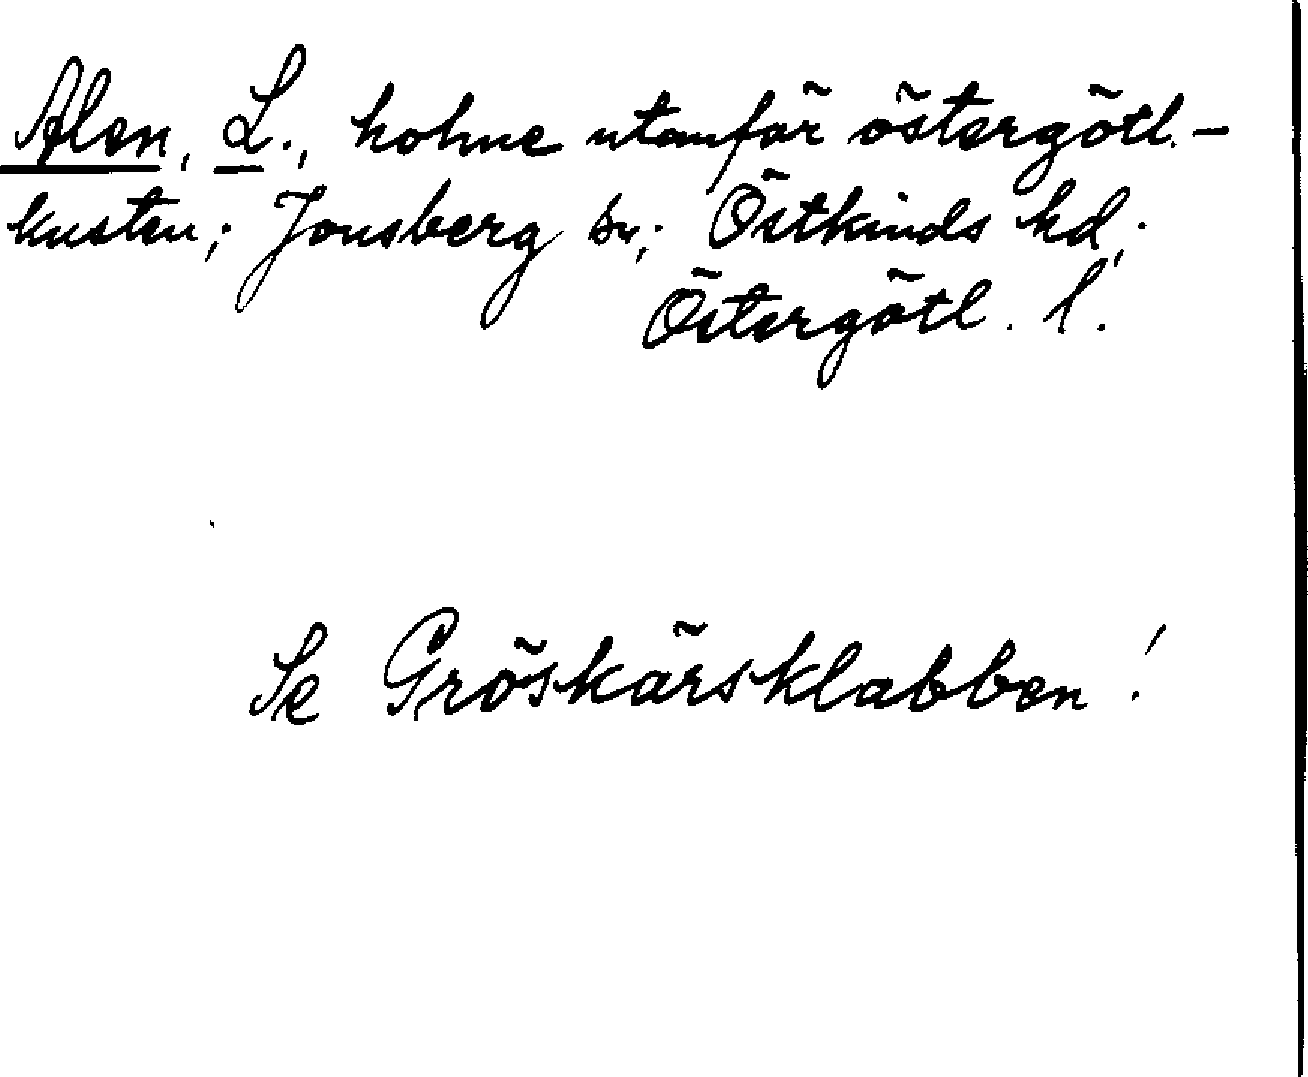 Alen, L., holme utanför östergötl.-
kusten; Jonsberg sn; Östkinds hd;
Östergötl. l.
Se Gröskärsklabben!